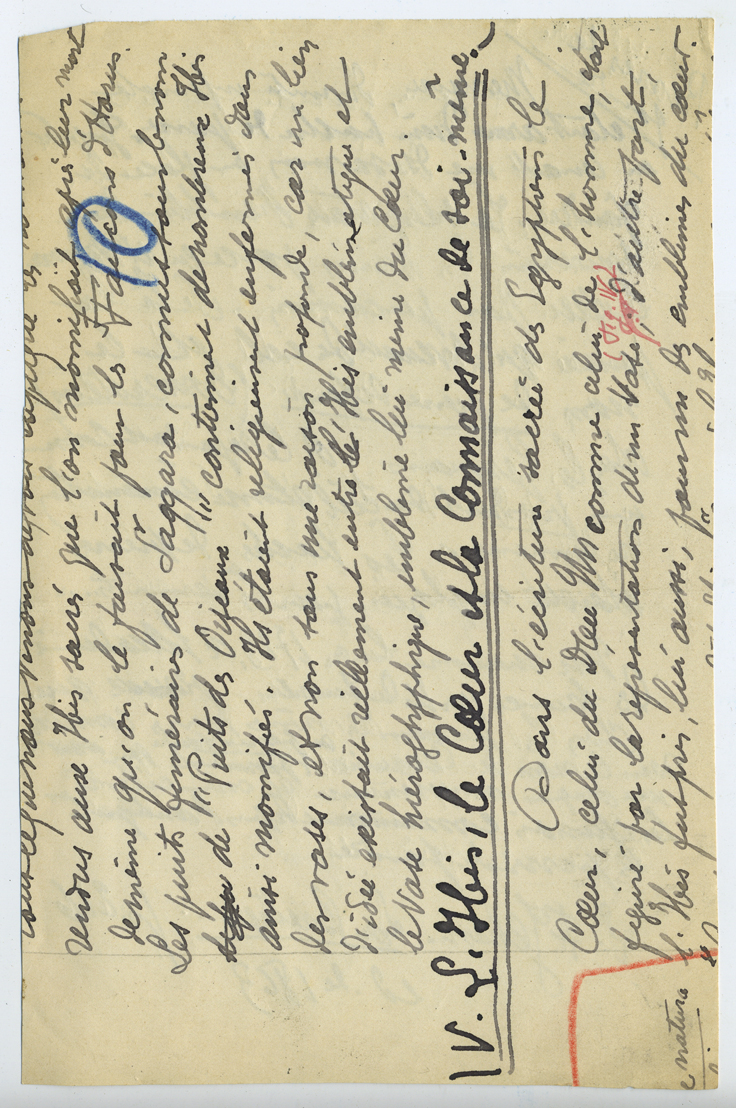 rendus aux Ibis sacrés que l'on momifiait après leur mort
de même qu'on le faisait pour les Faucons d'Horus.
10
Les puits funéraires de Saqqara, connus sous le nom
de "Puits des Oiseaux" contiennent de nombreux Ibis
ainsi momifiés. Ils étaient religieusement enfermés dans
des vases, et non sans une raison profonde, car un lien
d'idée existait réellement entre l'Ibis emblématique et
le Vase hiéroglyphique, emblème lui même du Cœur
IV. L'Ibis, le Cœur et la Connaissance de soi-même.
Dans l'écriture sacrée des Egyptiens le
Cœur, celui du Dieu comme celui de l'homme, était
figuré par la représentation d'un Vase, d'autre part,
(Fig. III)
l'Ibis fut pris, lui aussi, pour un des emblèmes du cœur.
nature